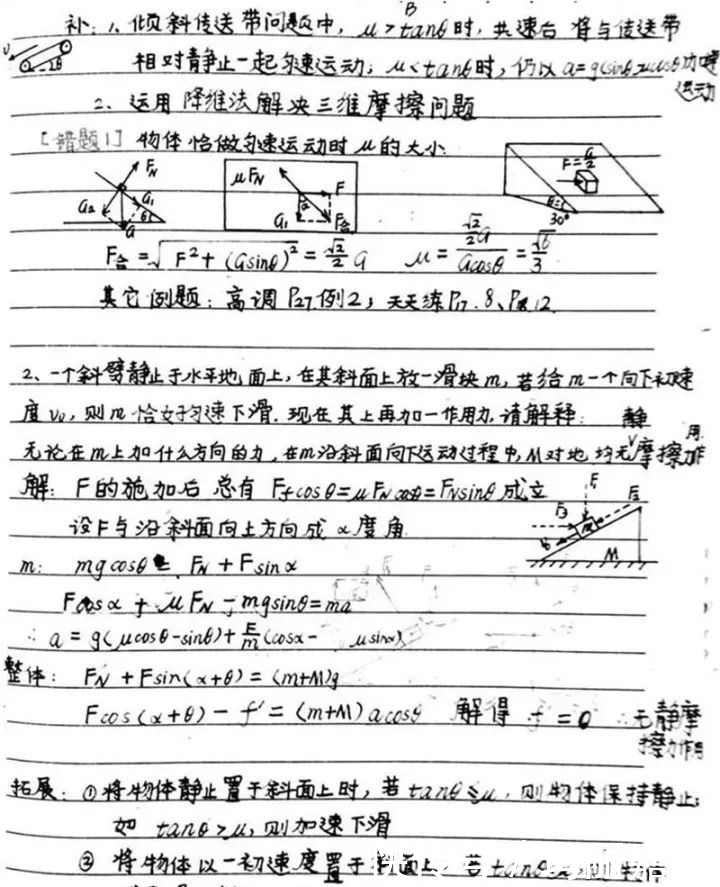 补：1、倾斜传送带问题中，μ>tanθ时，共速后 将与传送带
相对静止一起匀速运动；μ<tanθ时，仍以a=g(sinθ-μcosθ)
运动
2、运用 降维法解决三维摩擦问题
[错题1] 物体恰做匀速运动时μ的大小.
F_N G_2 G_1 θ G
μF_N F G_1 F合
F=G/2 θ= 30°
F合=√(F²+(Gsinθ)²)=√2/2 G μ=(√2/2 G)/(Gcosθ)=√6/3
其它例题：高调P27.例2；天天练P17.8、P18.12.
2、一个斜劈静止于水平地面上，在其斜面上放一滑块m，若给m一个向下初速
度v₀，则m恰好匀速下滑.现在其上再加一作用力.请解释： 静
无论在m上加什么方向的力，在m沿斜面向下运动过程中，M对地均无摩擦力作用
解：F的施加后 总有 F_f cosθ=μF_N cosθ=F_N sinθ成立
设F与沿斜面向上方向成α度角
F_1 F_2 F_3 m v₀ M
m： mgcosθ = F_N+Fsinα
Fcosα+μF_N-mgsinθ=ma
∴a=g(μcosθ-sinθ)+F/m(cosα- μsinα)
整体： F_N+Fsin(α+θ)=(m+M)g
Fcos(α+θ)-f'=(m+M)acosθ 解得 f=0 ∴无静摩
擦力作用
拓展：①将物体静止置于斜面上时，若tanθ≤μ，则物体保持静止；
如 tanθ>μ，则加速下滑
②将物体以一初速度置于斜面上 若tanθ 则物体